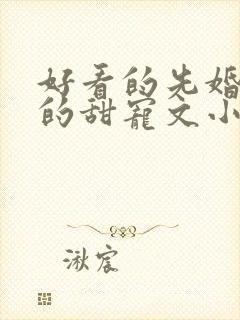 好看的先婚
的甜宠文小
湫宸